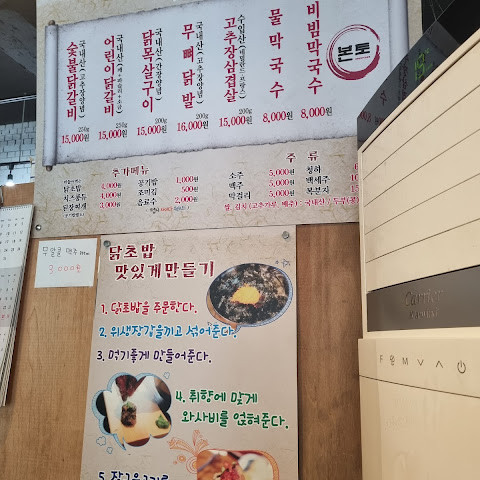 숯불닭갈비
국내산(고추장양념)
250g
15,000원
어린이닭갈비
국내산
250g
15,000원
닭목살구이
국내산(간장양념)
200g
15,000원
무뼈닭발
국내산(고추장양념)
200g
16,000원
고추장삼겹살
수입산
200g
15,000원
물막국수
8,000원
비빔막국수
8,000원
본토
추가메뉴
닭초밥 4,000원
치즈퐁듀 4,000원
된장찌개 3,000원
공기밥 1,000원
조미김 500
음료수 2,000
주류
소주 5,000원
맥주 5,000원
막걸리 5,000원
청하
백세주
복분자
쌀, 김치(고추가루, 배추) - 국내산 / 두부(콩)
무알콜 맥주
3,000원
닭초밥
맛있게만들기
1. 닭초밥을 주문한다.
2. 위생장갑을끼고 섞어준다.
3. 먹기좋게 만들어준다.
4. 취향에 맞게
와사비를 얹혀준다.
5.
Carrier
F
M V A